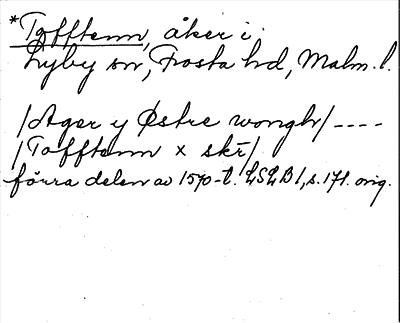 *Tofftenn, åker i
Lyby sn, Frosta hd, Malm. l.
/Ager y Østre wongh/ ----
/Tofftenn x skr/
förra delen av 1570-t. LSLB 1, s. 171. orig.